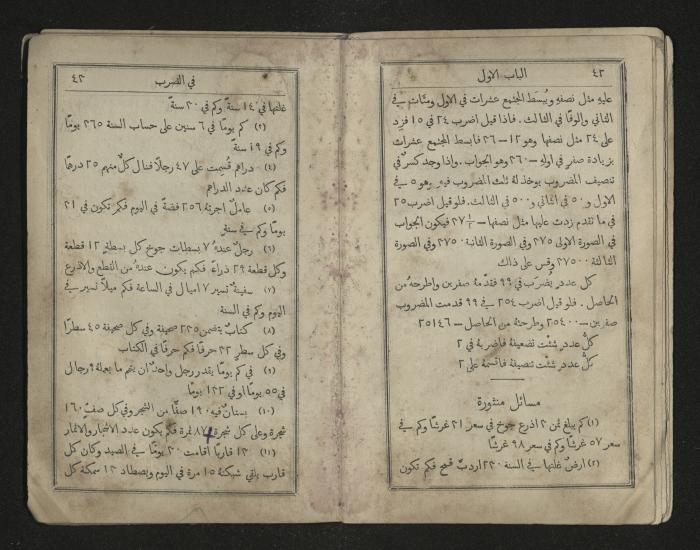 ٤٢ الباب الاول
عليهِ مثل نصفهِ ويُبسَط المجتمع عشرات في الاول ومئات في
الثاني والوفًا في الثالث. فاذا قيل اضرب ٢٤ في ١٥ فزِد
على ٢٤ مثل نصفها وهو ١٢ = ٣٦ فابسط المجتمع عشرات
بزيادة صفر في اولهِ = ٣٦٠ وهو الجواب. واذا وجد كسرٌ في
تنصيف المضروب يوخذ لهُ ثلث المضروب فيهِ وهو ٥ في
الاول و٥٠ في الثاني و٥٠٠ في الثالث. فلو قيل اضرب ٢٥
في ما تقدم زدت عليها مثل نصفها = ٣٧ ١/٢ فيكون الجواب
في الصورة الاولى ٣٧٥ وفي الصورة الثانية ٣٧٥٠ وفي الصورة
الثالثة ٣٧٥٠٠ وقس على ذلك
كل عدد يُضرَب في ٩٩ فقدّمهُ صفرين واطرحهُ من
الحاصل. فلو قيل اضرب ٢٥٤ في ٩٩ قدمت المضروب
صفرين = ٢٥٤٠٠ وطرحتهُ من الحاصل = ٢٥١٤٦
كلُّ عددٍ شئت تضعيفهُ فاضربهُ في ٢
كلُّ عددٍ شئت تنصيفهُ فاقسمهُ على ٢
مسائل منثورة
(١) كم يبلغ ثمن ٢ اذرع جوخ في سعر ٢١ غرشًا وكم في
سعر ٥٧ غرشًا وكم في سعر ٩٨ غرشًا
(٢) ارضٌ غلتها في السنة ٢٣٠ اردبّ قمح فكم تكون
في الضرب ٤٣
غلتها في ١٤ سنةً وكم في ٣٠ سنةً
(٣) كم يومًا في ٦ سنين على حساب السنة ٣٦٥ يومًا
وكم في ١٩ سنةً
(٤) دراهم قُسِمت على ٤٧ رجلًا فنال كلٌّ منهم ٢٥ درهمًا
فكم كان عدد الدراهم
(٥) عاملٌ اجرتهُ ٢٥٦ فضةً في اليوم فكم تكون في ٢١
يومًا وكم في سنةٍ
(٦) رجلٌ عندهُ ٧ بسطات جوخ كل بسطةٍ ١٢ قطعة
وكل قطعة ٢٩ ذراعًا فكم يكون عندهُ من القطع والاذرع
(٧) سفينةٌ تسير ٧ اميال في الساعة فكم ميلًا تسير في
اليوم وكم في السنة
(٨) كتابٌ يتضمن ٢٢٥ صحيفة وفي كل صحيفة ٤٥ سطرًا
وفي كل سطر ٢٢ حرفًا فكم حرفًا في الكتاب
(٩) في كم يومًا يقدر رجل واحدٌ ان يتم ما يعملهُ ٩ رجال
في ٥٥ يومًا او في ١٢٢ يومًا
(١٠) بستانٌ فيهِ ١٩٠ صفًّا من الشجر وفي كل صفٍّ ١٦٠
شجرة وعلى كل شجرة ٨٧ ثمرة فكم يكون عدد الاشجار والاثمار
(١١) ١٢ قاربًا اقامت ٢٠ يومًا في الصيد وكان كل
قارب يلقي شبكتهُ ١٥ مرة في اليوم ويصطاد ١٢ سمكة كل